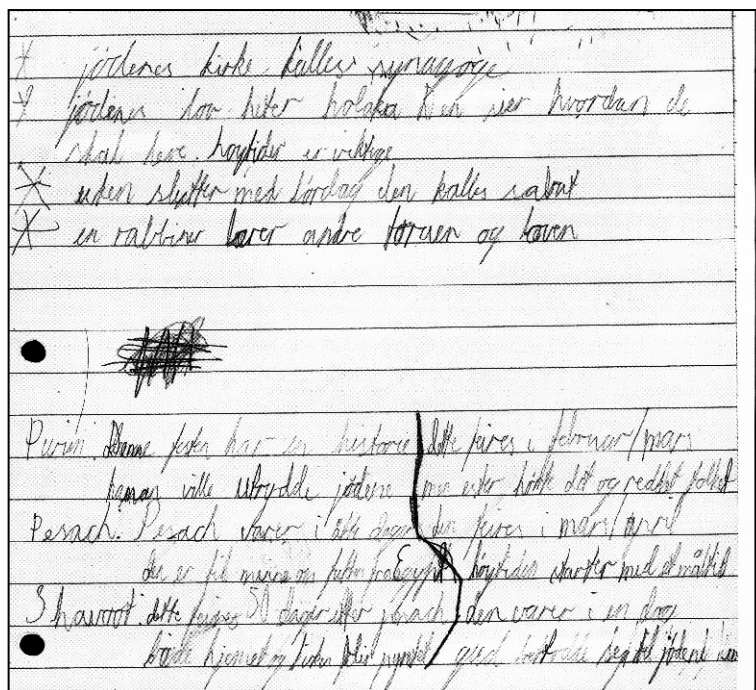 * jødenes kirke kalles synagoge
* jødenes lov heter holaka den sier hvordan de
skal leve. høytider er viktige
* uken slutter med lørdag den kalles sabat
* en rabbiner lærer andre toraen og loven
Purim. Denne festen har en historie dette feires i februar/mars
haman ville utrydde jødene men ester hørte det og reddet folket
Pesach. Pesach varer i åtte dager den feires i mars/april
den er til minne om Egypt høytiden starter med et måltid
Shavuot. dette feires 50 dager etter pesach den varer i en dag
både hjemmet og blir pyntet gud seg til jødene